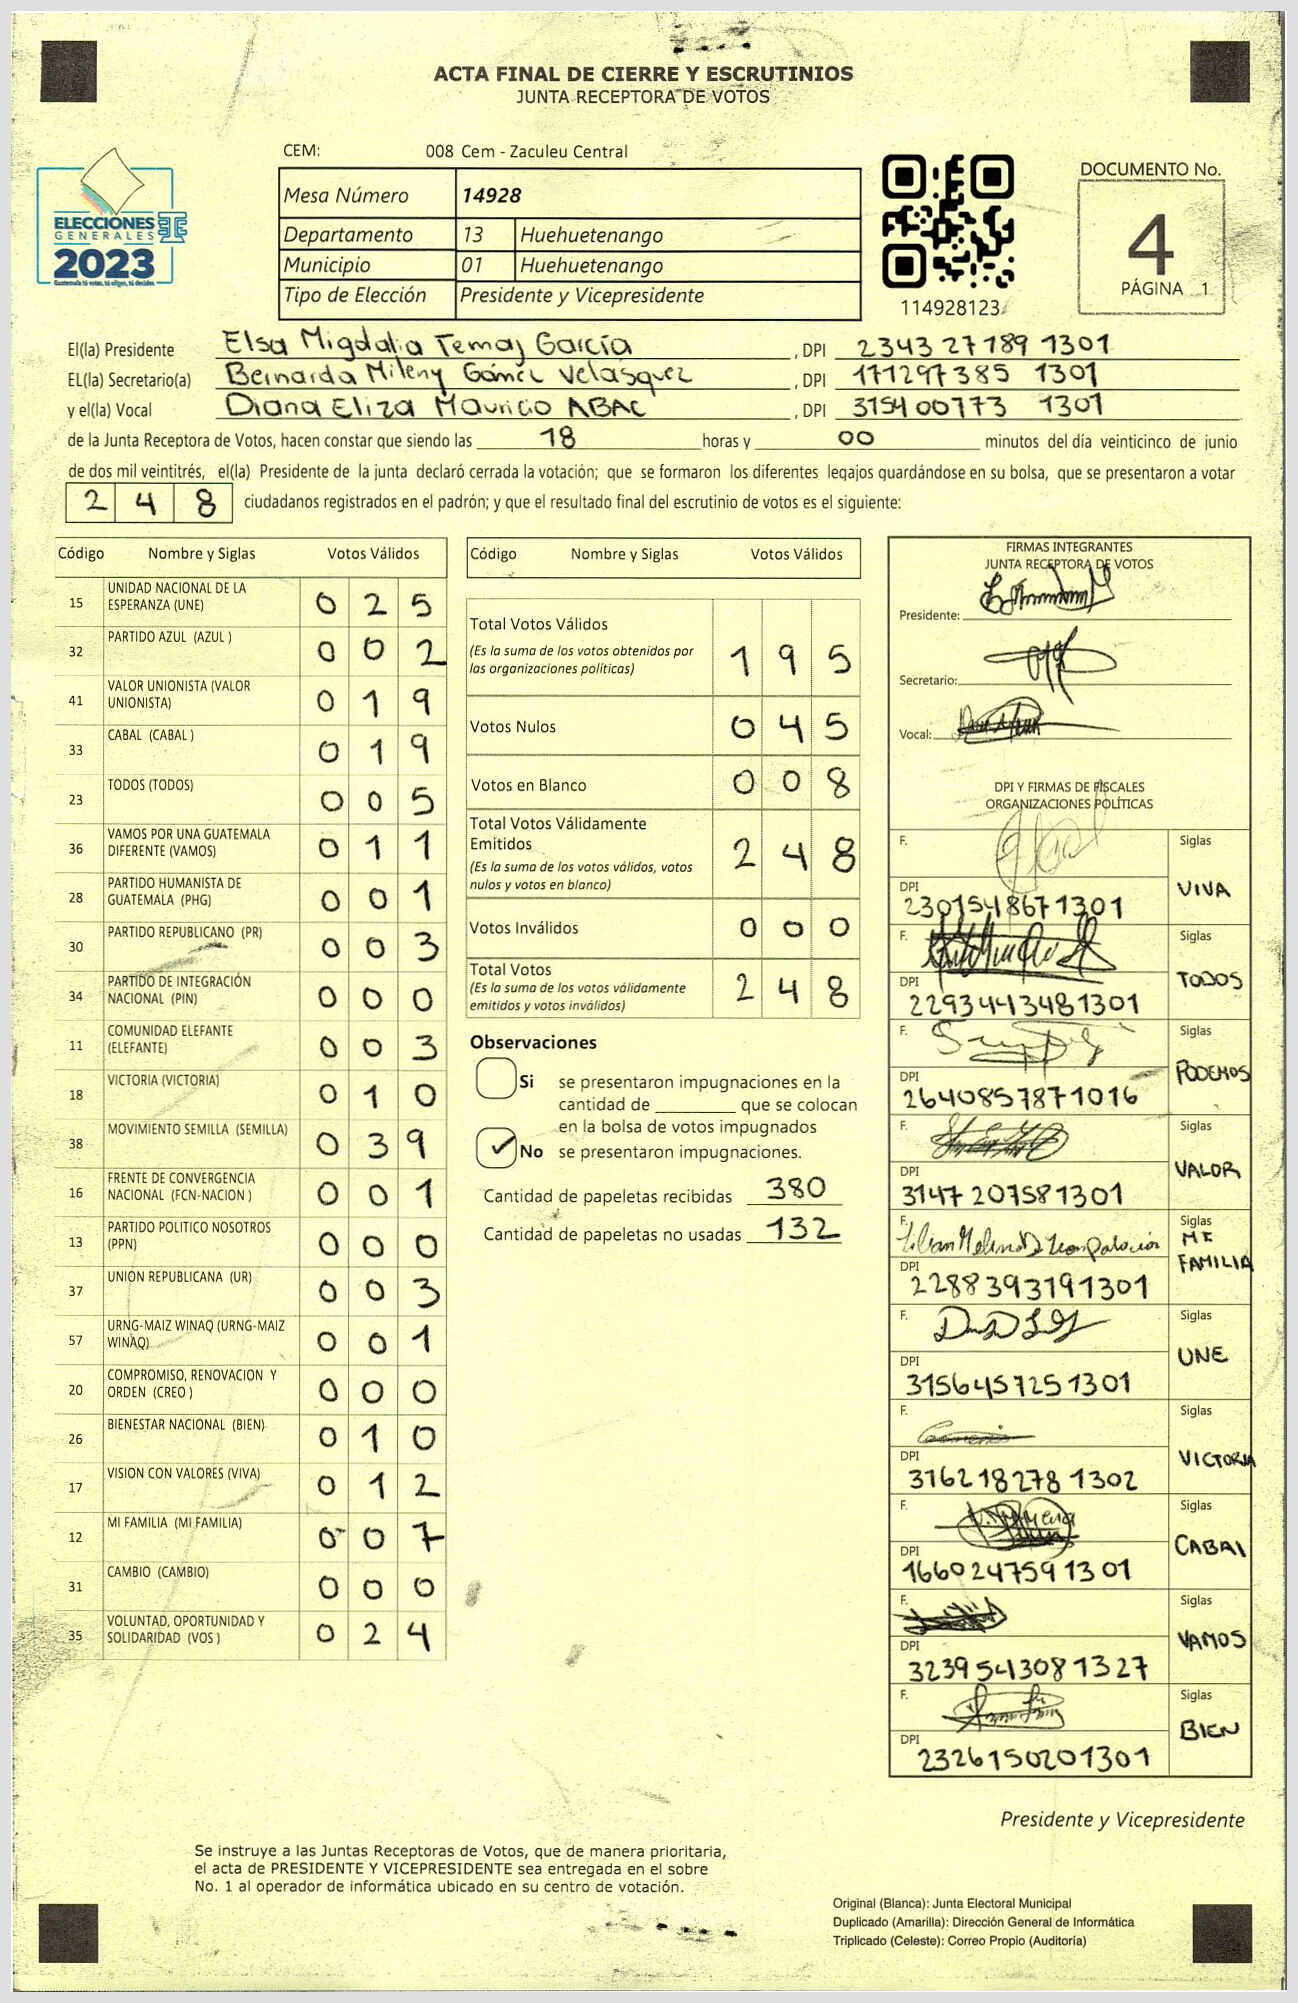 ACTA FINAL DE CIERRE Y ESCRUTINIOS
JUNTA RECEPTORA DE VOTOS
CEM: 008 Cem - Zaculeu Central
Mesa Número 14928
Departamento 13 Huehuetenango
Municipio 01 Huehuetenango
Tipo de Elección Presidente y Vicepresidente
ELECCIONES
GENERALES
2023
Guatemala tú votas, tú eliges, tú decides
114928123
DOCUMENTO No.
4
PÁGINA 1
El(la) Presidente Elsa Migdalia Temaj García , DPI 2343 27189 1301
EL(la) Secretario(a) Bernarda Mileny Gómez Velasquez , DPI 171297385 1301
y el(la) Vocal Diana Eliza Mauricio ABAC , DPI 315400773 1301
de la Junta Receptora de Votos, hacen constar que siendo las 18 horas y 00 minutos del día veinticinco de junio
de dos mil veintitrés, el(la) Presidente de la junta declaró cerrada la votación; que se formaron los diferentes legajos guardándose en su bolsa, que se presentaron a votar
2 4 8 ciudadanos registrados en el padrón; y que el resultado final del escrutinio de votos es el siguiente:
Código Nombre y Siglas Votos Válidos
15 UNIDAD NACIONAL DE LA
ESPERANZA (UNE) 0 2 5
32 PARTIDO AZUL (AZUL ) 0 0 2
41 VALOR UNIONISTA (VALOR
UNIONISTA) 0 1 9
33 CABAL (CABAL ) 0 1 9
23 TODOS (TODOS) 0 0 5
36 VAMOS POR UNA GUATEMALA
DIFERENTE (VAMOS) 0 1 1
28 PARTIDO HUMANISTA DE
GUATEMALA (PHG) 0 0 1
30 PARTIDO REPUBLICANO (PR) 0 0 3
34 PARTIDO DE INTEGRACIÓN
NACIONAL (PIN) 0 0 0
11 COMUNIDAD ELEFANTE
(ELEFANTE) 0 0 3
18 VICTORIA (VICTORIA) 0 1 0
38 MOVIMIENTO SEMILLA (SEMILLA) 0 3 9
16 FRENTE DE CONVERGENCIA
NACIONAL (FCN-NACION ) 0 0 1
13 PARTIDO POLITICO NOSOTROS
(PPN) 0 0 0
37 UNION REPUBLICANA (UR) 0 0 3
57 URNG-MAIZ WINAQ (URNG-MAIZ
WINAQ) 0 0 1
20 COMPROMISO, RENOVACION Y
ORDEN (CREO ) 0 0 0
26 BIENESTAR NACIONAL (BIEN) 0 1 0
17 VISION CON VALORES (VIVA) 0 1 2
12 MI FAMILIA (MI FAMILIA) 0 0 7
31 CAMBIO (CAMBIO) 0 0 0
35 VOLUNTAD, OPORTUNIDAD Y
SOLIDARIDAD (VOS ) 0 2 4
Código Nombre y Siglas Votos Válidos
Total Votos Válidos
(Es la suma de los votos obtenidos por
las organizaciones políticas) 1 9 5
Votos Nulos 0 4 5
Votos en Blanco 0 0 8
Total Votos Válidamente
Emitidos
(Es la suma de los votos válidos, votos
nulos y votos en blanco) 2 4 8
Votos Inválidos 0 0 0
Total Votos
(Es la suma de los votos válidamente
emitidos y votos inválidos) 2 4 8
Observaciones
Si se presentaron impugnaciones en la
cantidad de ________ que se colocan
en la bolsa de votos impugnados
No se presentaron impugnaciones.
Cantidad de papeletas recibidas 380
Cantidad de papeletas no usadas 132
FIRMAS INTEGRANTES
JUNTA RECEPTORA DE VOTOS
Presidente:
Secretario:
Vocal:
DPI Y FIRMAS DE FISCALES
ORGANIZACIONES POLÍTICAS
F. Siglas
VIVA
DPI
2301548671301
F. Siglas
TODOS
DPI
2293443481301
F. Siglas
PODEMOS
DPI
2640857871016
F. Siglas
VALOR
DPI
3147 207581301
F. Siglas
MI
FAMILIA
DPI
2288393191301
F. Siglas
UNE
DPI
3156457251301
F. Siglas
VICTORIA
DPI
316218278 1302
F. Siglas
CABAL
DPI
1660247591301
F. Siglas
VAMOS
DPI
3239543081327
F. Siglas
BIEN
DPI
2326150201301
Presidente y Vicepresidente
Se instruye a las Juntas Receptoras de Votos, que de manera prioritaria,
el acta de PRESIDENTE Y VICEPRESIDENTE sea entregada en el sobre
No. 1 al operador de informática ubicado en su centro de votación.
Original (Blanca): Junta Electoral Municipal
Duplicado (Amarilla): Dirección General de Informática
Triplicado (Celeste): Correo Propio (Auditoría)